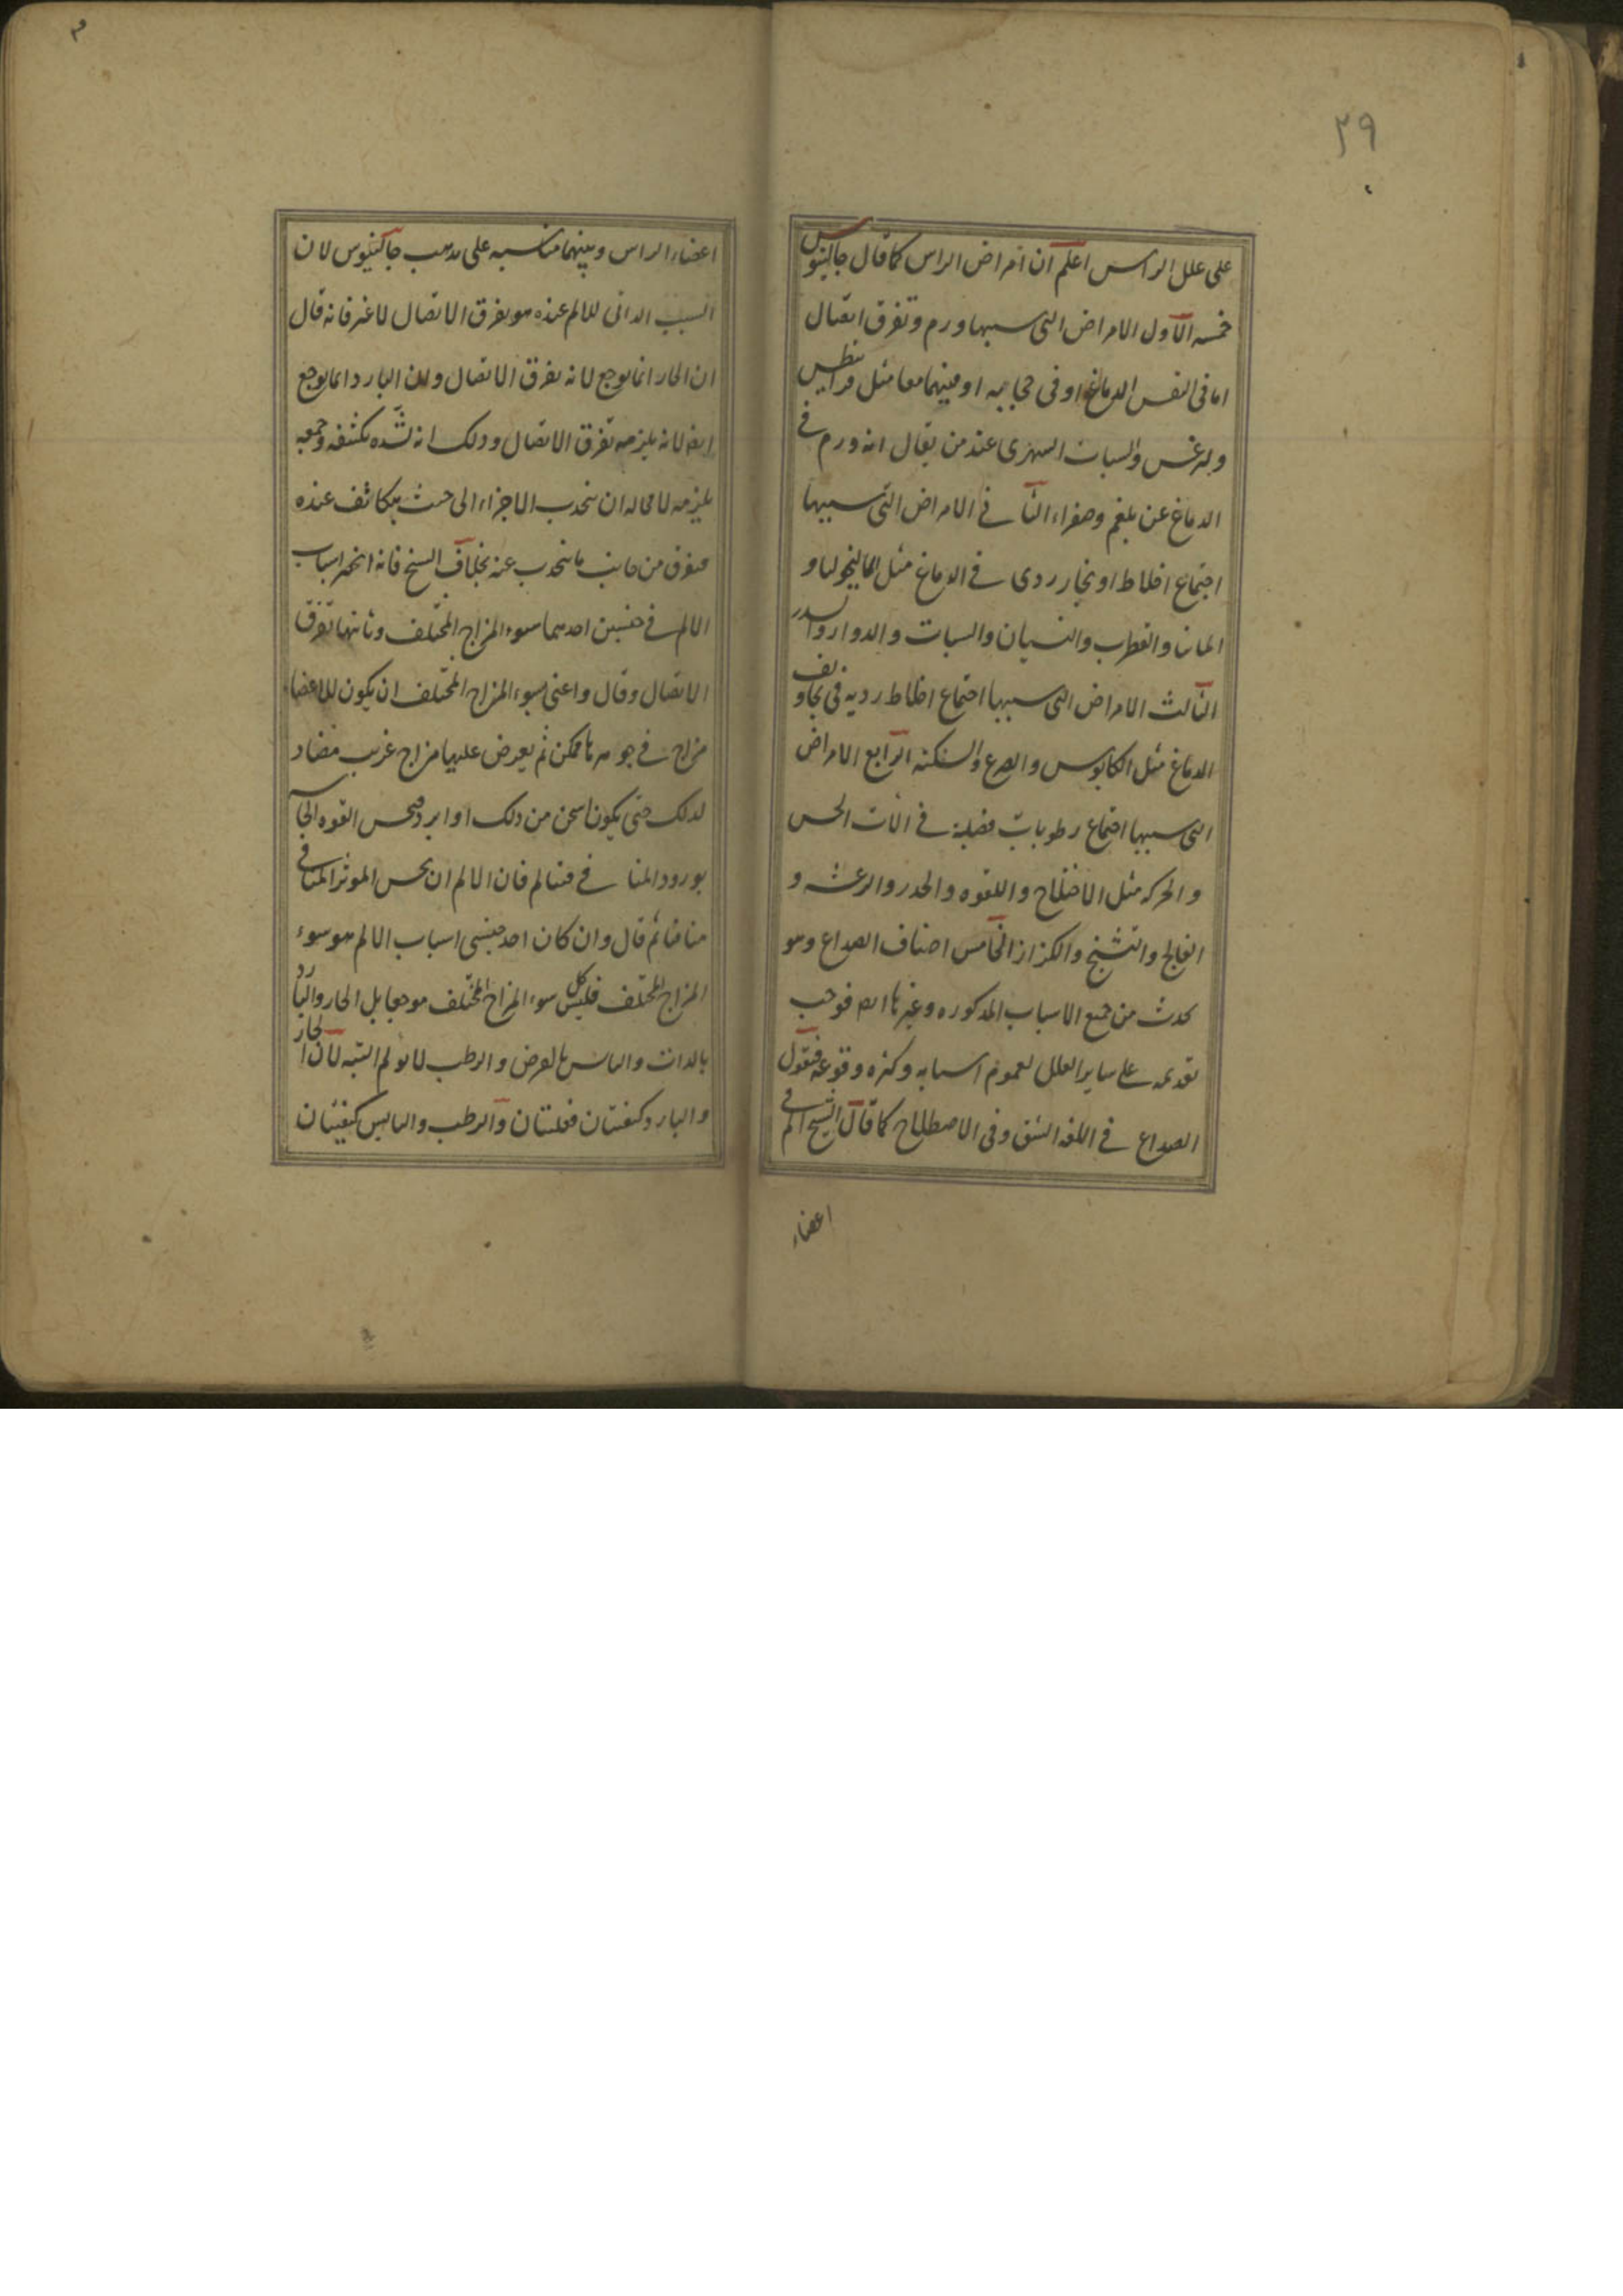 ٣٩
على علل الراس اعلم ان امراض الراس كما قال جالينوس
خمسه الاول الامراض التى سببها ورم وتفرق اتصال
اما فى النفس الدماغ او فى حجابيه او فيهما معا مثل قرانيطس
وليرغس والسبات السهرى عند من يقال انه ورم فى
الدماغ عن بلغم وصفراء الثانى الامراض التى سببها
اجتماع اخلاط او بخار ردى فى الدماغ مثل الماليخوليا و
المانيا والقطرب والنسيان والسبات والدوار والسدر
الثالث الامراض التى سببها اجتماع اخلاط رديه فى تجاويف
الدماغ مثل الكابوس والصرع والسكته الرابع الامراض
التى سببها اجتماع رطوبات فضلية فى الات الحس
والحركه مثل الاختلاج واللقوه والخدر والرعشه و
الفالج والتشنج والكزاز الخامس اصناف الصداع وهو
يحدث من جميع الاسباب المذكوره وغيرها ايضا فوجب
تقديمه على ساير العلل لعموم اسبابه وكثره وقوعه فنقول
الصداع فى اللغه الشق وفى الاصطلاح كما قال الشيخ الم فى
اعضاء
اعضاء الراس وبينهما مناسبه على مذهب جالينوس لان
السبب الذاتى للالم عنده هو تفرق الاتصال لا غير فانه قال
ان الحار انما يوجع لانه يفرق الاتصال وان البارد انما يوجع
ايضا لانه يلزمه تفرق الاتصال وذلك انه لشده تكثيفه وجمعه
يلزمه لا محاله ان ينجذب الاجزاء الى حيث يتكاثف عنده
فيتفرق من جانب ما ينجذب عنه بخلاف الشيخ فانه انحصر اسباب
الالم فى جنسين احدهما سوء المزاج المختلف وثانيهما تفرق
الاتصال وقال واعنى بسوء المزاج المختلف ان يكون للاعضاء
مزاج فى جوهرها ممكن ثم يعرض عليها مزاج غريب مضاد
لذلك حتى يكون اسخن من ذلك او ابرد فيحس القوه الحاسه
بورود المنافى فيتالم فان الالم ان يحس الموثر المنافى
منافيا ثم قال وان كان احد جنسى اسباب الالم هو سوء
المزاج المختلف فليس كل سوء المزاج المختلف موجعا بل الحار والبارد
بالذات واليابس بالعرض والرطب لا يولم البته لان الحار
والبارد كيفيتان فعليتان والرطب واليابس كيفيتان